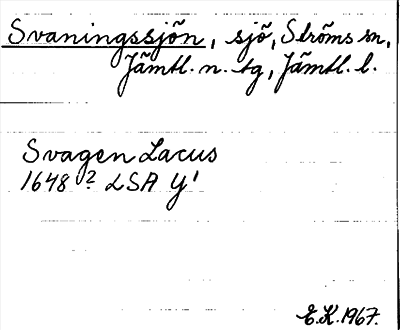 Svaningssjön, sjö, Ströms sn,
Jämtl. n. tg, Jämtl. l.
Svagen Lacus
1648 ? LSA Y¹
E.K. 1967.